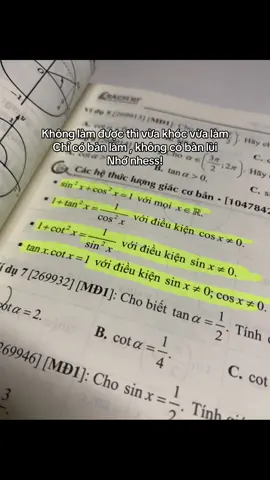 Ví dụ 5 [269913] [MĐ1]: Cho
Không làm được thì vừa khóc vừa làm
Chỉ có bản làm , không có bản lùi
Nhớ nhess!
tan α > 0.
Các hệ thức lượng giác cơ bản - [104784
• sin² x + cos² x = 1 với mọi x ∈ ℝ.
• 1 + tan² x = 1/cos² x với điều kiện cos x ≠ 0.
• 1 + cot² x = 1/sin² x với điều kiện sin x ≠ 0.
• tan x. cot x = 1 với điều kiện sin x ≠ 0; cos x ≠ 0.
Ví dụ 7 [269932] [MĐ1]: Cho biết tan α = 1/2. Tính
cot α = 2.
B. cot α = 1/4.
C. cot
269946] [MĐ1]: Cho sin x = 1/2. Tính